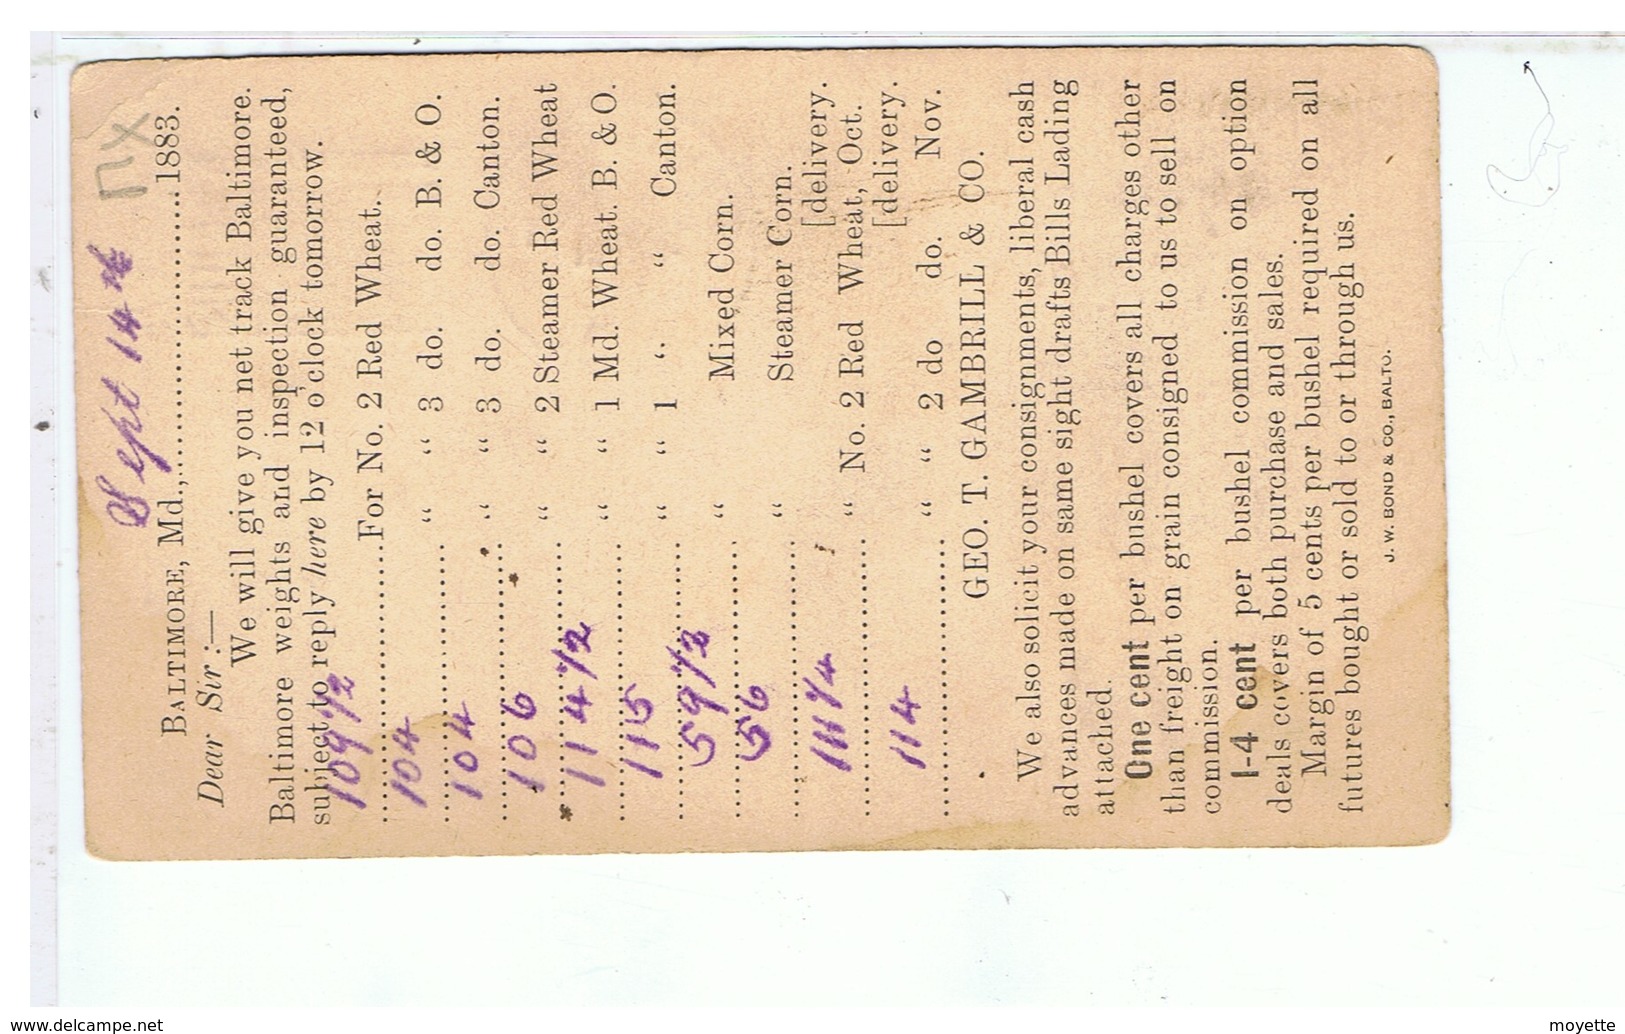 Sept 14th
BALTIMORE, Md.,....................1883.
Dear Sir:—
We will give you net track Baltimore.
Baltimore weights and inspection guaranteed,
subject to reply here by 12 o'clock tomorrow.
109 1/2 For No. 2 Red Wheat.
104 “ “ 3 do. do. B. & O.
104 “ “ 3 do. do. Canton.
106 “ “ 2 Steamer Red Wheat
114 1/2 “ “ 1 Md. Wheat. B. & O.
115 “ “ 1 “ “ Canton.
59 1/2 “ Mixed Corn.
56 “ Steamer Corn.
[delivery.
111 1/4 “ No. 2 Red Wheat, Oct.
[delivery.
114 “ “ 2 do do. Nov.
GEO. T. GAMBRILL & CO.
We also solicit your consignments, liberal cash
advances made on same sight drafts Bills Lading
attached.
One cent per bushel covers all charges other
than freight on grain consigned to us to sell on
commission.
1-4 cent per bushel commission on option
deals covers both purchase and sales.
Margin of 5 cents per bushel required on all
futures bought or sold to or through us.
J. W. BOND & CO., BALTO.
www.delcampe.net
moyette